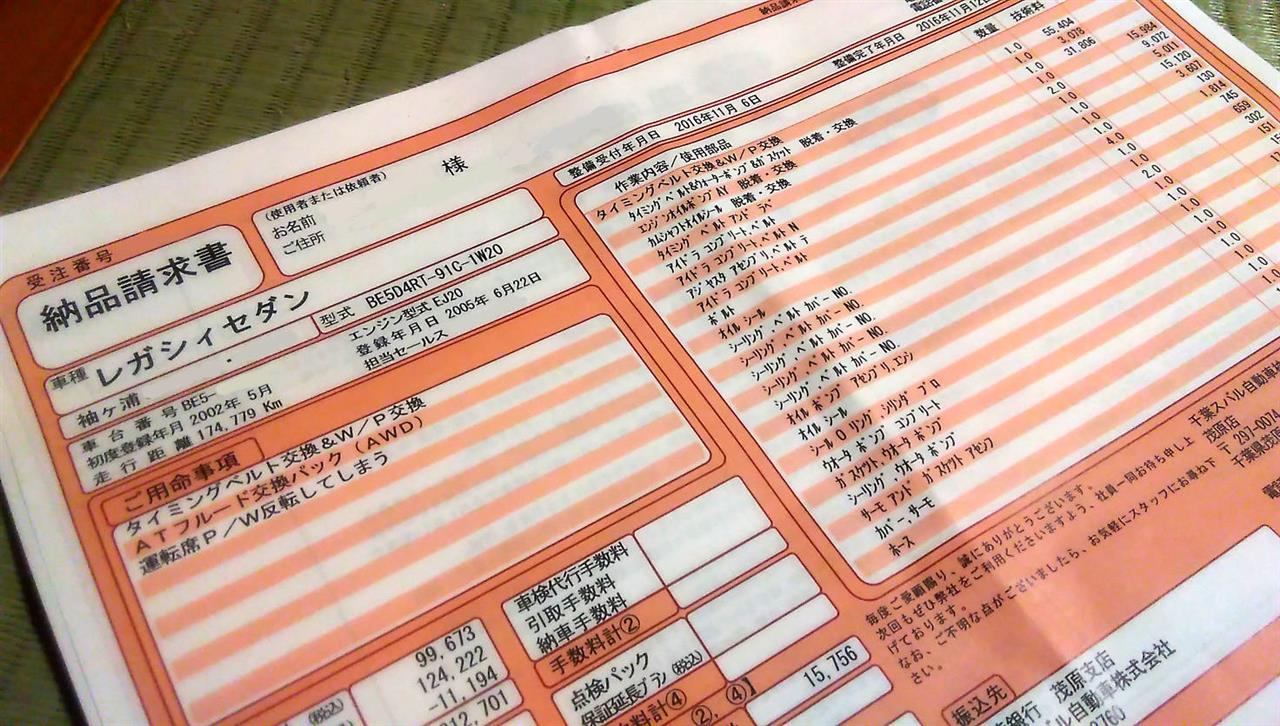 受注番号
納品請求書
(使用者または依頼者)
お名前
ご住所
様
車種 レガシィセダン
型式 BE5D4RT-91C-1W20
袖ヶ浦
エンジン型式 EJ20
車台番号 BE5-
登録年月日 2005年 6月22日
初度登録年月 2002年 5月
担当セールス
走行距離 174,779 Km
ご用命事項
タイミングベルト交換&W/P交換
ATフルード交換パック(AWD)
運転席P/W反転してしまう
99,673
124,222
-11,194
212,701
車検代行手数料
引取手数料
納車手数料
手数料計②
点検パック (税込)
15,756
整備受付年月日 2016年11月 6日
整備完了年月日 2016年11月12日
作業内容/使用部品
数量
技術料
タイミングベルト交換&W/P交換
タイミング ベルト&ウォーターポンプ&ガスケット 脱着・交換
エンジンオイルポンプ AY 脱着・交換
カムシャフトオイルシール 脱着・交換
タイミング ベルト アンド アベ
アイドラ コンプリート,ベルト
アイドラ コンプリート,ベルト N
アジヤスタ アセンブリ,ベルト テ
アイドラ コンプリート,ベルト
ボルト
オイル シール
シーリング,ベルト カバー NO.
シーリング,ベルト カバー NO.
シーリング,ベルト カバー NO.
シーリング,ベルト カバー NO.
オイル ポンプ アセンブリ,エンジ
オイル シール
シール O リング,シリンダ ブロ
ウオータ ポンプ コンプリート
ガスケツト,ウオータ ポンプ
シーリング,ウオータ ポンプ
サーモ アンド ガスケツト アセンブ
カバー,サーモ
ホース
55,404
3,078
31,806
15,984
9,072
5,011
15,120
3,607
130
1,814
745
302
659
151
毎度ご愛顧賜り、誠にありがとうございます。
次回もぜひ弊社をご利用くださいますよう、社員一同お待ち申し上
げております。
なお、ご不明な点がございましたら、お気軽にスタッフにお尋ね下
さい。
千葉スバル自動車株
茂原店
〒297-0074
千葉県茂
振込先
銀行 茂原支店
バル自動車株式会社